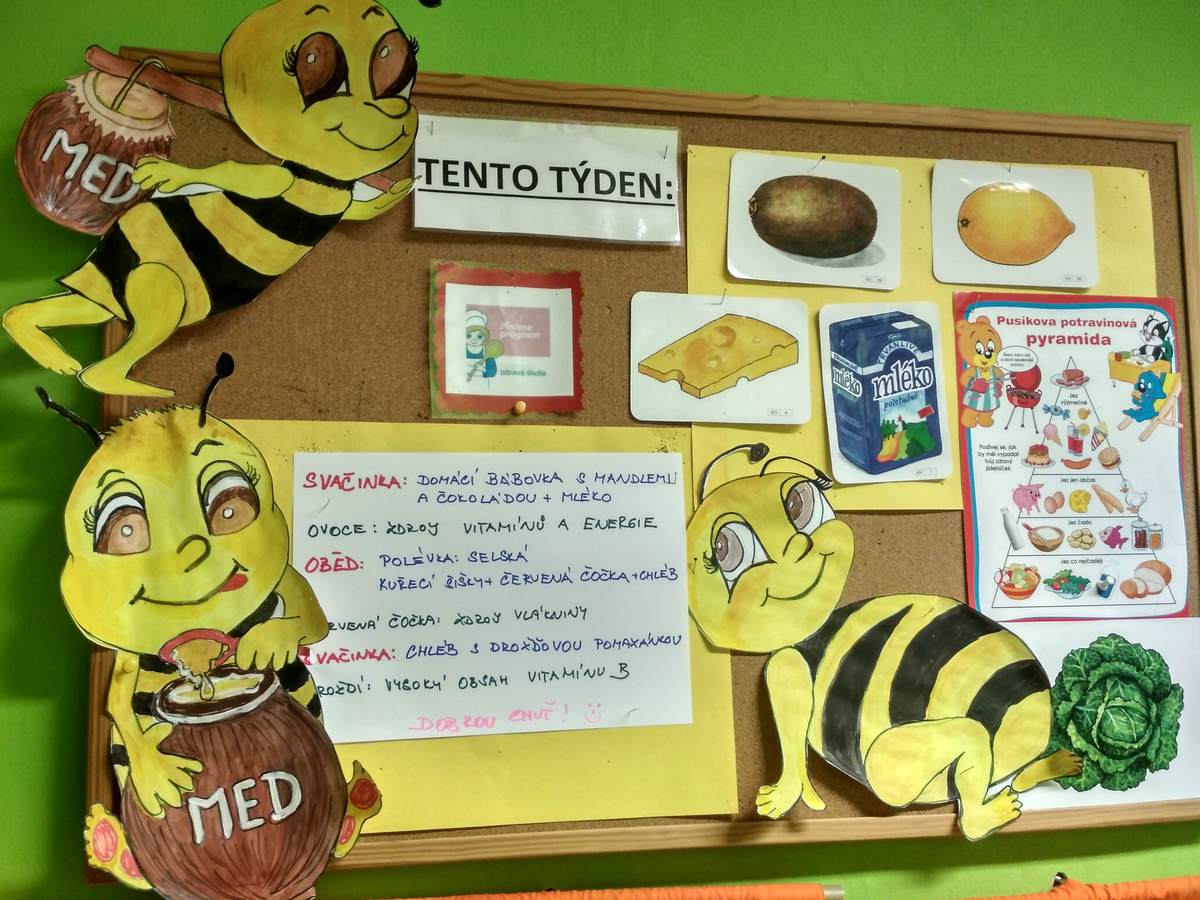 MED
TENTO TÝDEN:
Plníme
program
zdravá škola
TRVANLIVÉ
mléko
mléko
polotučné
Pusíkova potravinová
pyramida
Jez
výjimečně
Podívej se, jak
by měl vypadat
tvůj zdravý
jídelníček.
Jez jen občas
Jez často
Jez co nejčastěji
SVAČINKA: DOMÁCÍ BÁBOVKA S MANDLEMI
A ČOKOLÁDOU + MLÉKO
OVOCE: ZDROJ VITAMÍNŮ A ENERGIE
OBĚD: POLÉVKA: SELSKÁ
KUŘECÍ ŘÍZKY + ČERVENÁ ČOČKA + CHLÉB
RVENÁ ČOČKA: ZDROJ VLÁKNINY
SVAČINKA: CHLÉB S DROŽĎOVOU POMAZÁNKOU
ROŽDÍ: VYSOKÝ OBSAH VITAMÍNU B
DOBROU CHUŤ!
MED